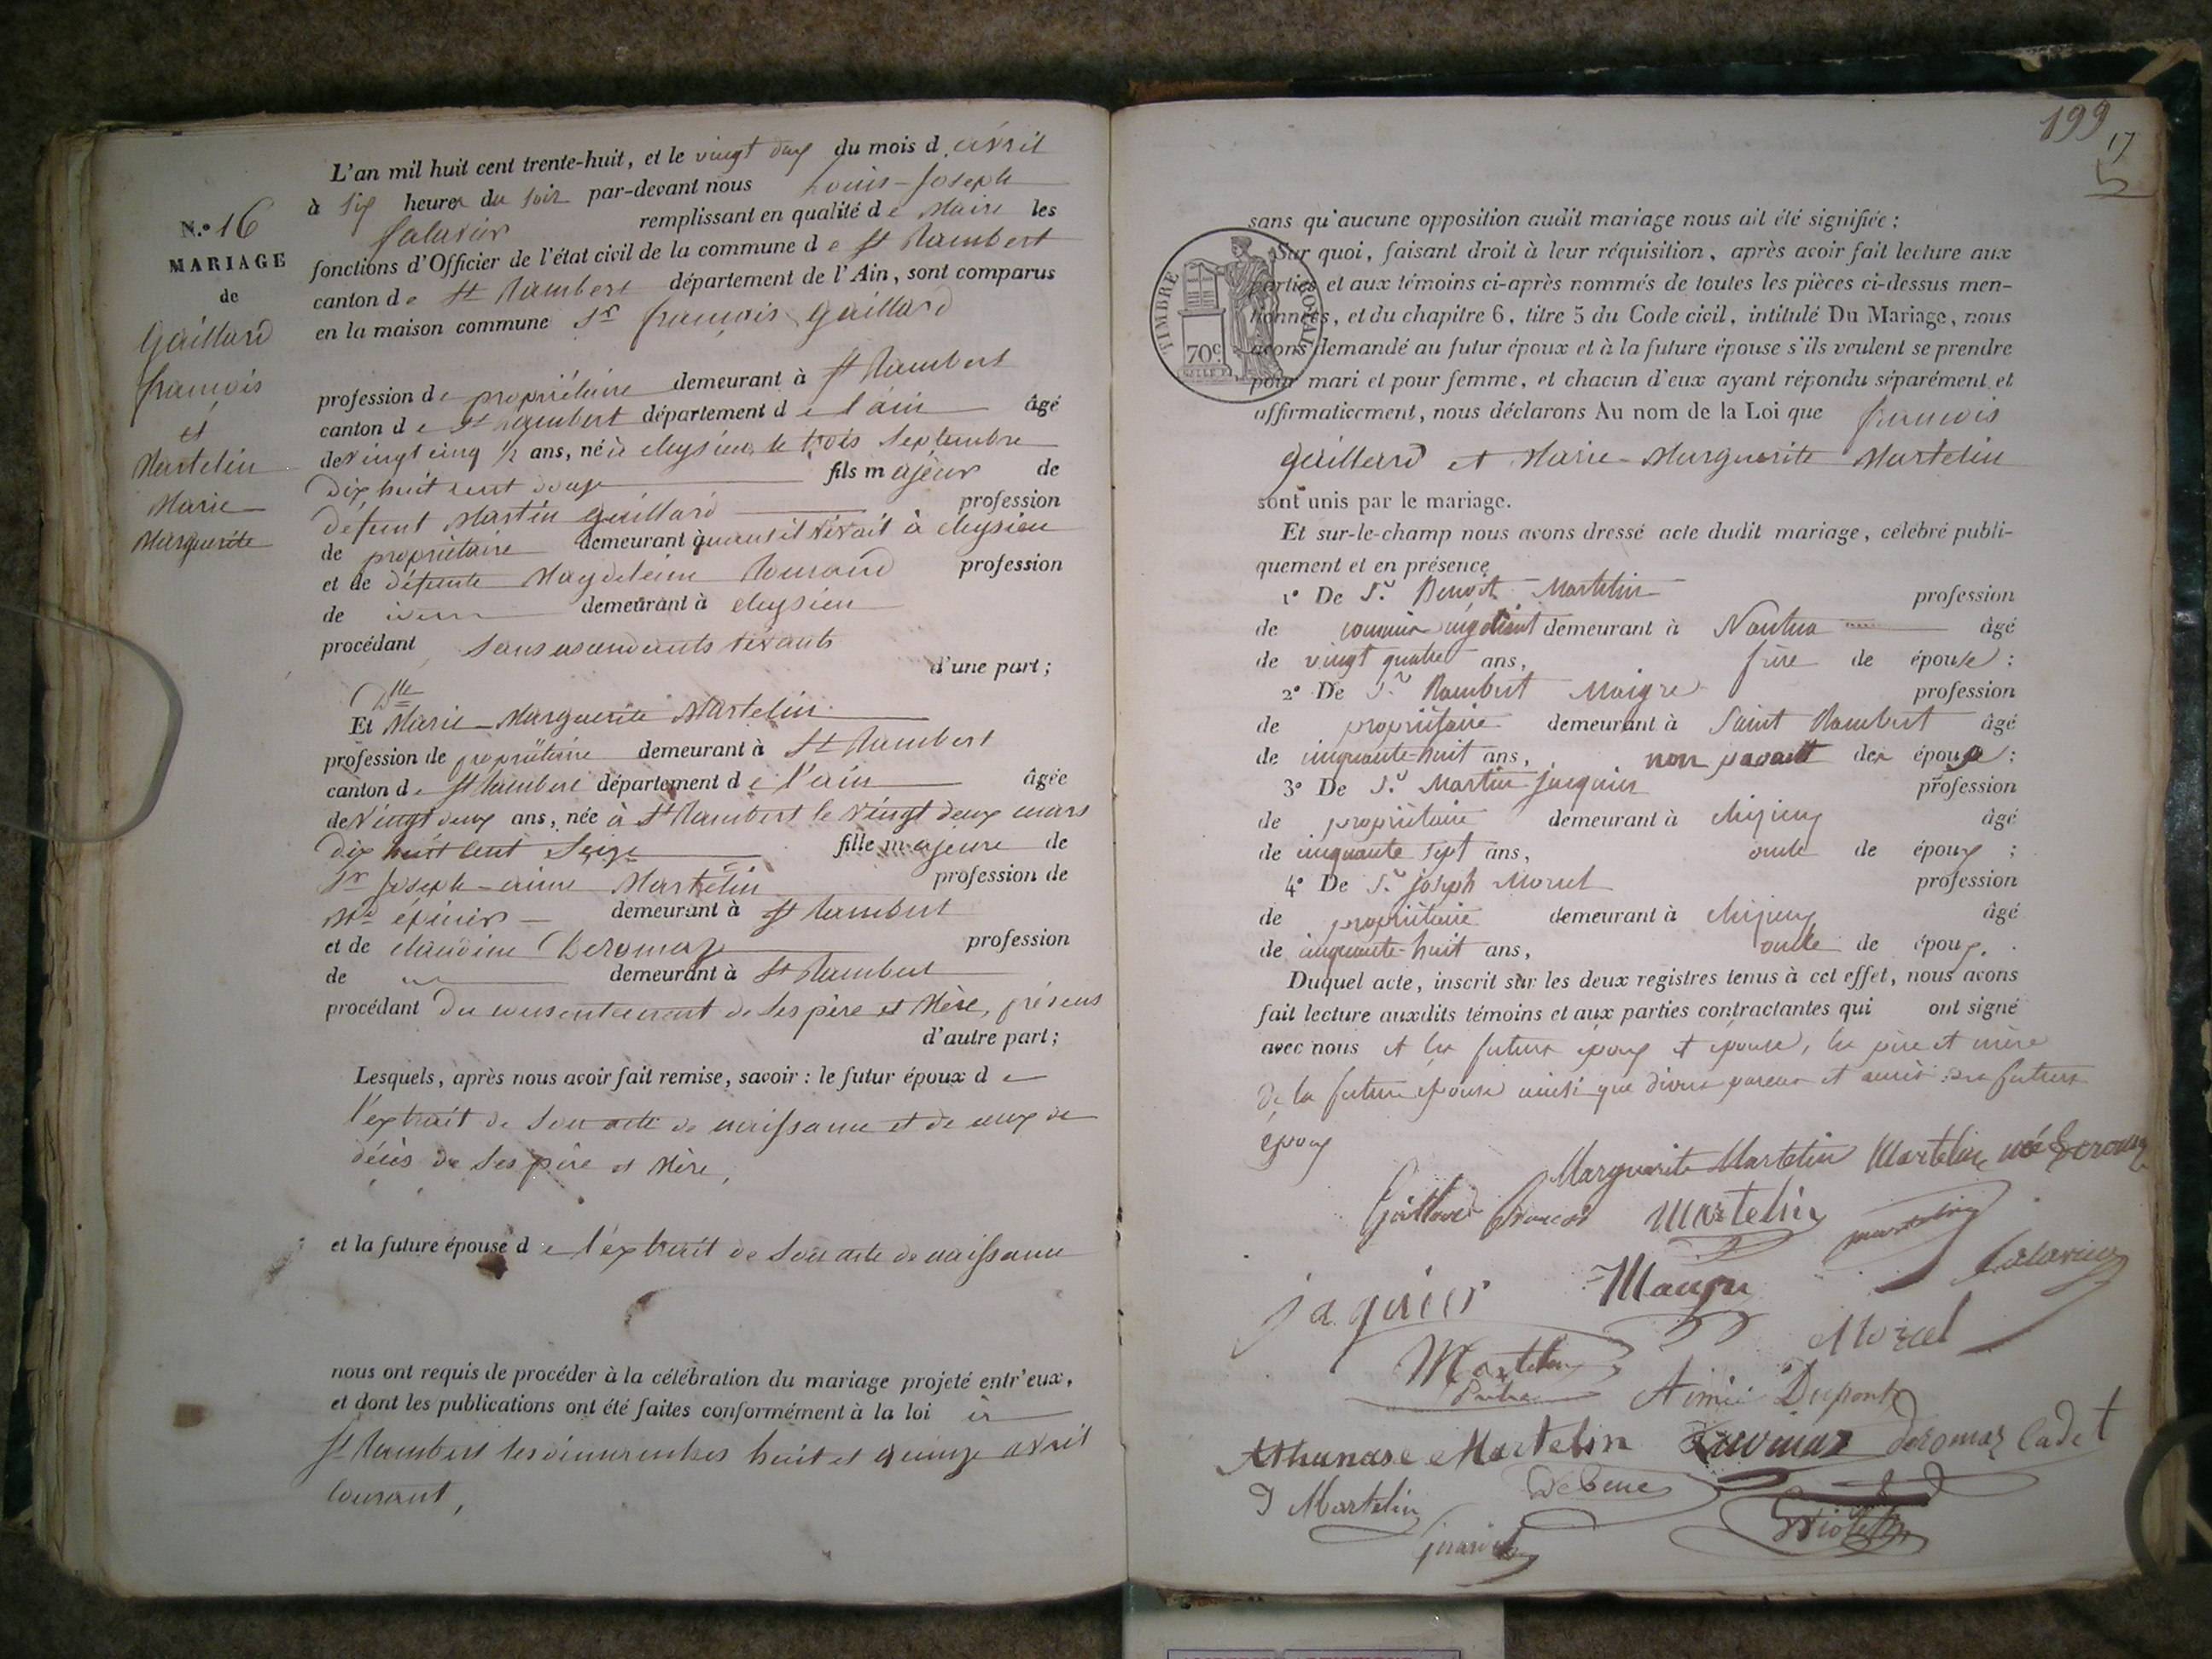 N.º 16
MARIAGE
de
Gaillard
françois
et
Martelin
Marie
Marguerite
L'an mil huit cent trente-huit, et le vingt deux du mois d avril
à six heures du soir par-devant nous Louis-Joseph
remplissant en qualité de Maire les
fonctions d'Officier de l'état civil de la commune de St Rambert
canton de St Rambert département de l'Ain, sont comparus
en la maison commune Sr françois Gaillard
profession de propriétaire demeurant à St Rambert
canton de St Rambert département de l'ain âgé
de vingt cinq ½ ans, né à cleyzieu le trois Septembre
dix huit cent douze fils majeur de
défunt Martin Gaillard profession
de propriétaire demeurant quand il vivait à cleyzieu
et de défunte Magdeleine profession
de idem demeurant à cleyzieu
procédant sans ascendants vivants
d'une part ;
Dlle
Et Marie-Marguerite Martelin
profession de propriétaire demeurant à St Rambert
canton de St Rambert département de l'ain âgée
de Vingt deux ans, née à St Rambert le Vingt deux mars
dix huit cent Seize fille majeure de
Sr Joseph-aimé Martelin profession de
Md épicier demeurant à St Rambert
et de claudine Deromaz profession
de demeurant à St Rambert
procédant du consentement de ses père et Mère, présens
d'autre part ;
Lesquels, après nous avoir fait remise, savoir : le futur époux de
l'extrait de son acte de naissance et de ceux de
décès de ses père et Mère,
et la future épouse de l'extrait de son acte de naissance
nous ont requis de procéder à la célébration du mariage projeté entr'eux,
et dont les publications ont été faites conformément à la loi à
St Rambert les dimanches huit et quinze avril
courant,
199
17
sans qu'aucune opposition audit mariage nous ait été signifiée ;
TIMBRE ROYAL
70c.
Sur quoi, faisant droit à leur réquisition, après avoir fait lecture aux
parties et aux témoins ci-après nommés de toutes les pièces ci-dessus men-
tionnées, et du chapitre 6, titre 5 du Code civil, intitulé Du Mariage, nous
avons demandé au futur époux et à la future épouse s'ils veulent se prendre
pour mari et pour femme, et chacun d'eux ayant répondu séparément et
affirmativement, nous déclarons Au nom de la Loi que françois
gaillard et Marie-Marguerite Martelin
sont unis par le mariage.
Et sur-le-champ nous avons dressé acte dudit mariage, célébré publi-
quement et en présence
1º De Sr. Benoit Martelin profession
de commis négotiant demeurant à Nantua âgé
de vingt quatre ans, frère de épouse :
2º De Sr. Rambert Maigre profession
de propriétaire demeurant à Saint Rambert âgé
de cinquante-huit ans, non parent des époux :
3º De Sr. Martin Jacquier profession
de propriétaire demeurant à âgé
de cinquante sept ans, oncle de époux ;
4º De Sr. joseph Morel profession
de propriétaire demeurant à âgé
de cinquante-huit ans, oncle de époux.
Duquel acte, inscrit sur les deux registres tenus à cet effet, nous avons
fait lecture auxdits témoins et aux parties contractantes qui ont signé
avec nous et les futurs époux et épouse, les père et mère
de la future épouse ainsi que divers parens et amis des futurs
époux
Marguerite Martelin Martelin née Deromaz
Gaillard françois Martelin Martelin
jaquier
Morel
Martelin
Aimée Dupont
Athanase Martelin deromaz Cadet
Martelin